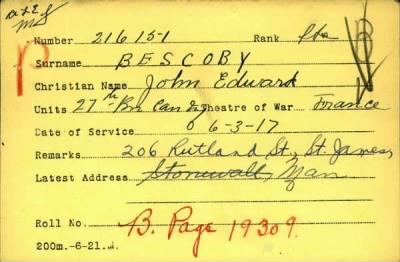 Number 216151 Rank Pte
Surname BESCOBY
Christian Name John Edward
Units 27th Bn Can Inf Theatre of War France
Date of Service 6-3-17
Remarks 206 Rutland St., St. James,
Latest Address Stonewall, Man
Roll No. B. Page 19309.
200m.-6-21.